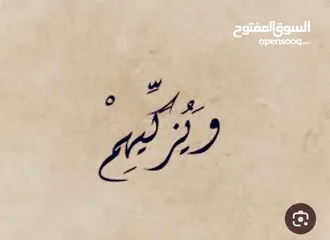 السوق المفتوح
opensooq.com
وَيُزَكِّيهِمْ